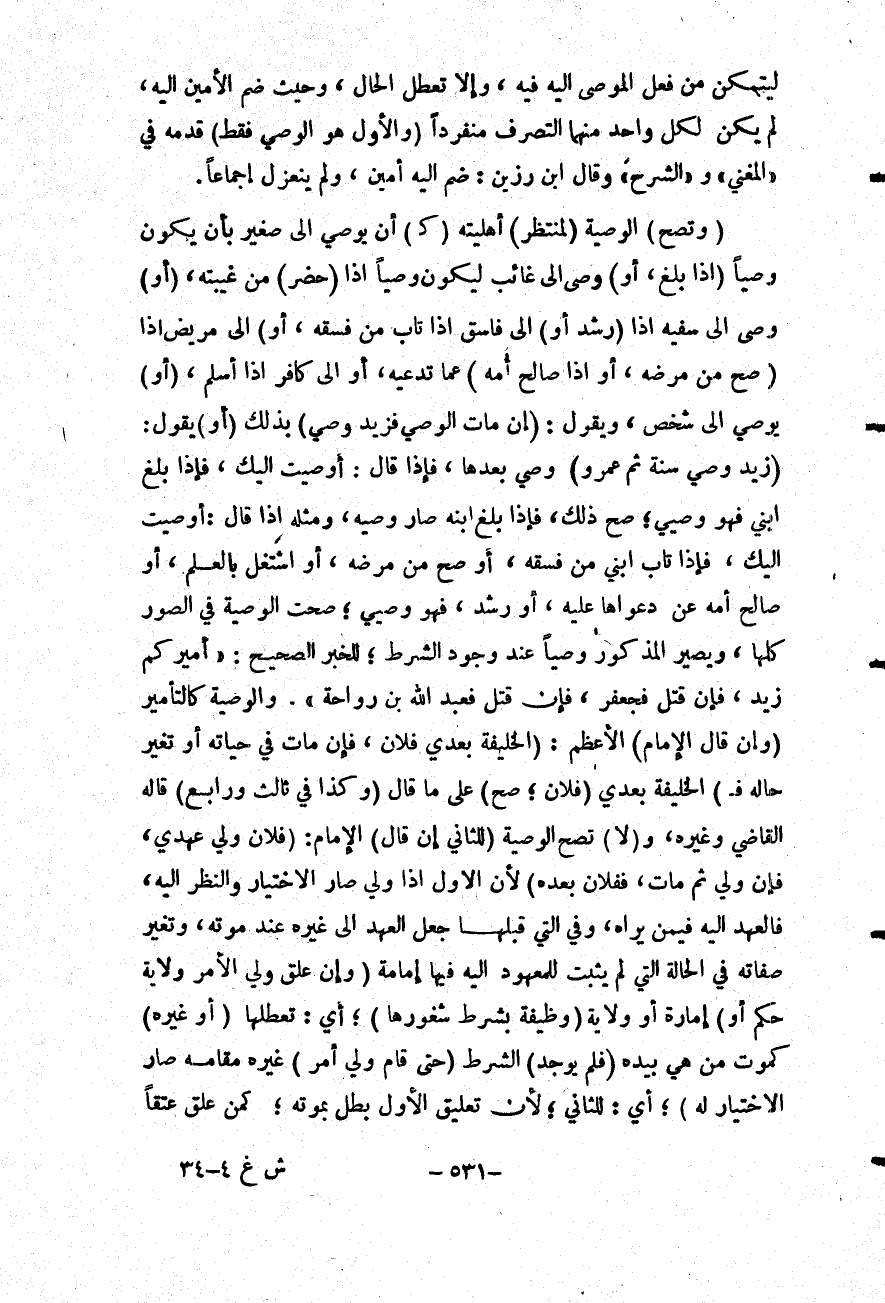 ليتمكن من فعل الموصى اليه فيه ، وإلا تعطل الحال ، وحيث ضم الأمين اليه ،
لم يكن لكل واحد منهما التصرف منفرداً (والأول هو الوصي فقط) قدمه في
«المغني» و «الشرح» وقال ابن رزين : ضم اليه أمين ، ولم ينعزل اجماعاً .
( وتصح) الوصية (لمنتظر) أهليته (كـ) أن يوصي الى صغير بأن يكون
وصياً (اذا بلغ ، أو) وصى الى غائب ليكون وصياً اذا (حضر) من غيبته ، (أو)
وصى الى سفيه اذا (رشد أو) الى فاسق اذا تاب من فسقه ، أو) الى مريض اذا
( صح من مرضه ، أو اذا صالح أمه ) عما تدعيه ، أو الى كافر اذا أسلم ، (أو)
يوصي الى شخص ، ويقول : (إن مات الوصي فزيد وصي) بذلك (أو) يقول :
(زيد وصي سنة ثم عمرو) وصي بعدها ، فإذا قال : أوصيت اليك ، فإذا بلغ
ابني فهو وصيي ؛ صح ذلك ، فإذا بلغ ابنه صار وصيه ، ومثله إذا قال : أوصيت
اليك ، فإذا تاب ابني من فسقه ، أو صح من مرضه ، أو اشتغل بالعـلم ، أو
صالح أمه عن دعواها عليه ، أو رشد ، فهو وصيي ؛ صحت الوصية في الصور
كلها ، ويصير المذكور وصياً عند وجود الشرط ؛ للخبر الصحيح : « أميركم
زيد ، فإن قتل فجعفر ، فإن قتل فعبد الله بن رواحة » . والوصية كالتأمير
(وان قال الإمام) الأعظم : (الخليفة بعدي فلان ، فإن مات في حياته أو تغير
حاله فـ ) الخليفة بعدي (فلان ؛ صح) على ما قال (وكذا في ثالث ورابع) قاله
القاضي وغيره ، و(لا) تصح الوصية (للثاني إن قال) الإمام : (فلان ولي عهدي ،
فإن ولي ثم مات ، ففلان بعده) لأن الاول اذا ولي صار الاختيار والنظر اليه ،
فالعهد اليه فيمن يراه ، وفي التي قبلهـا جعل العهد الى غيره عند موته ، وتغير
صفاته في الحالة التي لم يثبت للمعهود اليه فيها إمامة ( وإن علق ولي الأمر ولاية
حكم أو) إمارة أو ولاية (وظيفة بشرط شغورها ) ؛ أي : تعطلها ( أو غيره)
كموت من هي بيده (فلم يوجد) الشرط (حتى قام ولي أمر ) غيره مقامـه صار
الاختيار له ) ؛ أي : للثاني ؛ لأن تعليق الأول بطل بموته ؛ كمن علق عتقاً
-٥٣١-
ش غ ٤-٣٤